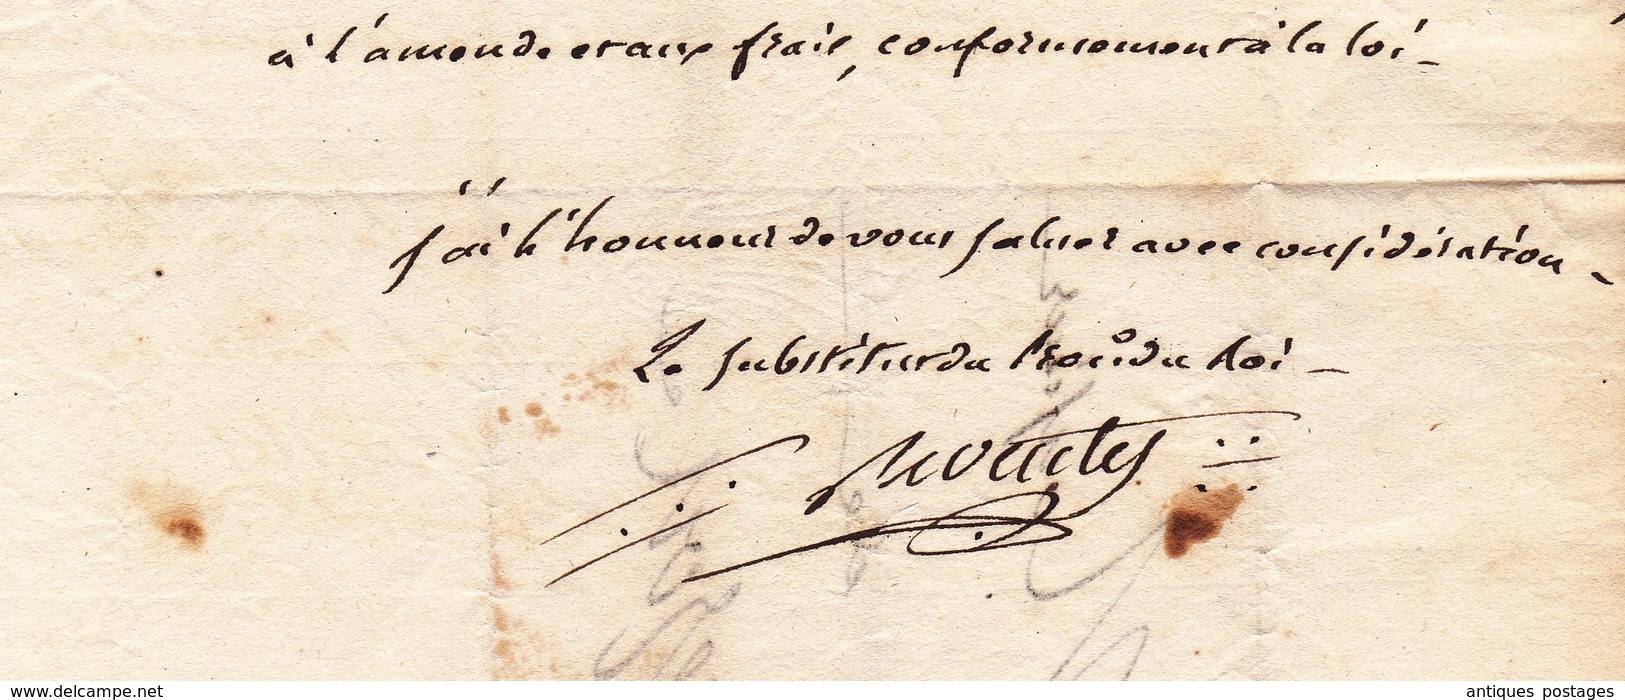 à l'amende et aux frais, conformement à la loi _
J'ai l'honneur de vous saluer avec considération -
Le substitut du Procr du Roi _
www.delcampe.net
antiques postages